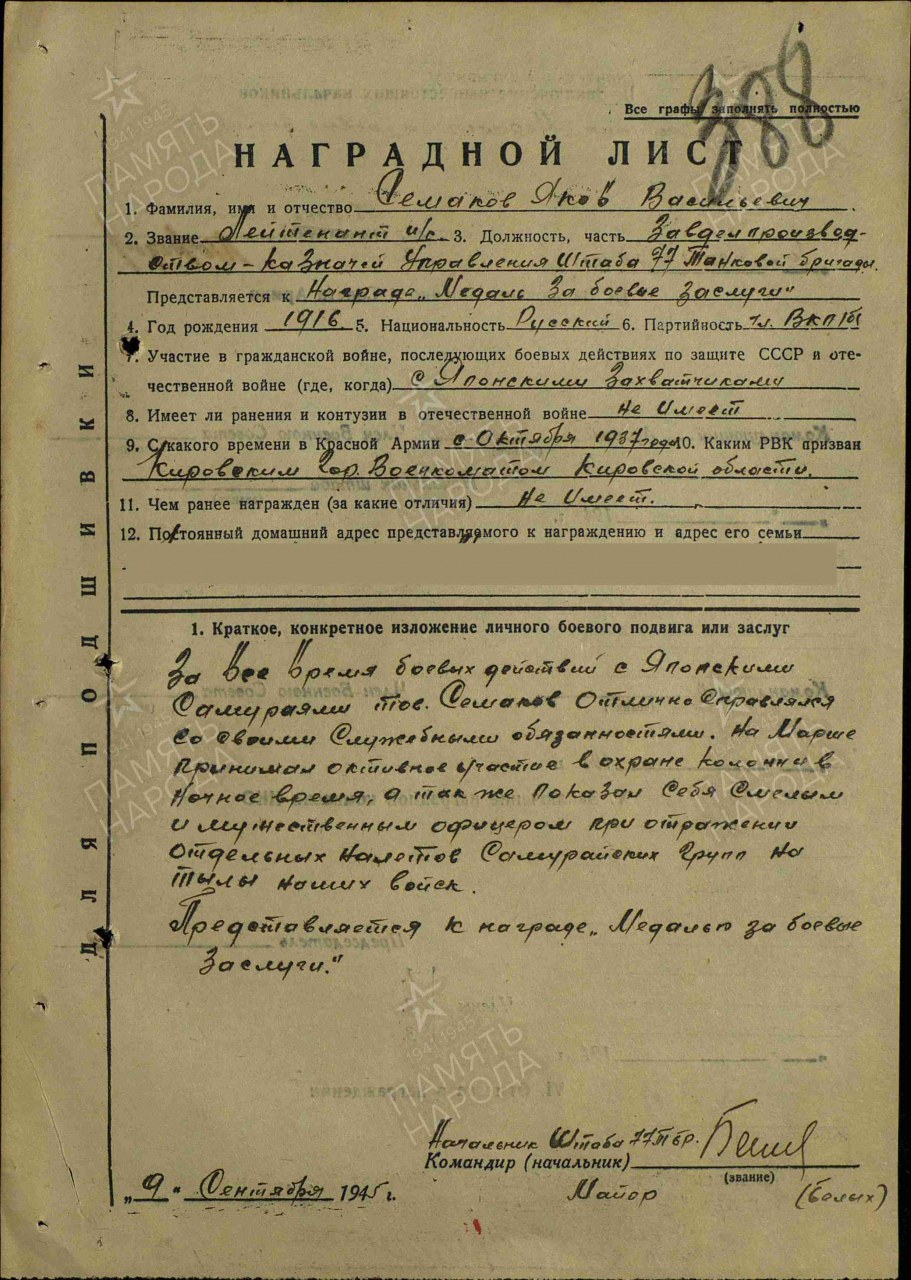 388
Все графы заполнять полностью
НАГРАДНОЙ ЛИСТ
1. Фамилия, имя и отчество Семаков Яков Васильевич
2. Звание Лейтенант и/с. 3. Должность, часть Завделопроизвод-
ством - казначей Управления Штаба 77 Танковой бригады.
Представляется к Награде „Медаль За боевые заслуги"
4. Год рождения 1916 5. Национальность Русский 6. Партийность чл. ВКП/б
7. Участие в гражданской войне, последующих боевых действиях по защите СССР и оте-
чественной войне (где, когда) с Японскими Захватчиками
8. Имеет ли ранения и контузии в отечественной войне не имеет
9. С какого времени в Красной Армии с Октября 1937 года 10. Каким РВК призван
Кировским Гор. Военкоматом Кировской области.
11. Чем ранее награжден (за какие отличия) Не имеет.
12. Постоянный домашний адрес представляемого к награждению и адрес его семьи
1. Краткое, конкретное изложение личного боевого подвига или заслуг
За Все Время боевых действий с Японскими
Самураями тов. Семаков Отлично справлялся
со своими Служебными обязанностями. На Марше
принимал активное участие в охране колонны в
Ночное время, а так же показал себя Смелым
и мужественным офицером при отражении
Отдельных Налетов Самурайских Групп на
тылы наших войск.
Представляется к награде „Медалью за боевые
Заслуги."
Начальник Штаба 77 Тбр.
Командир (начальник)
(звание)
„9" Сентября 1945 г.
Майор (Белых)
ДЛЯ ПОДШИВКИ
ПАМЯТЬ НАРОДА
1941-1945